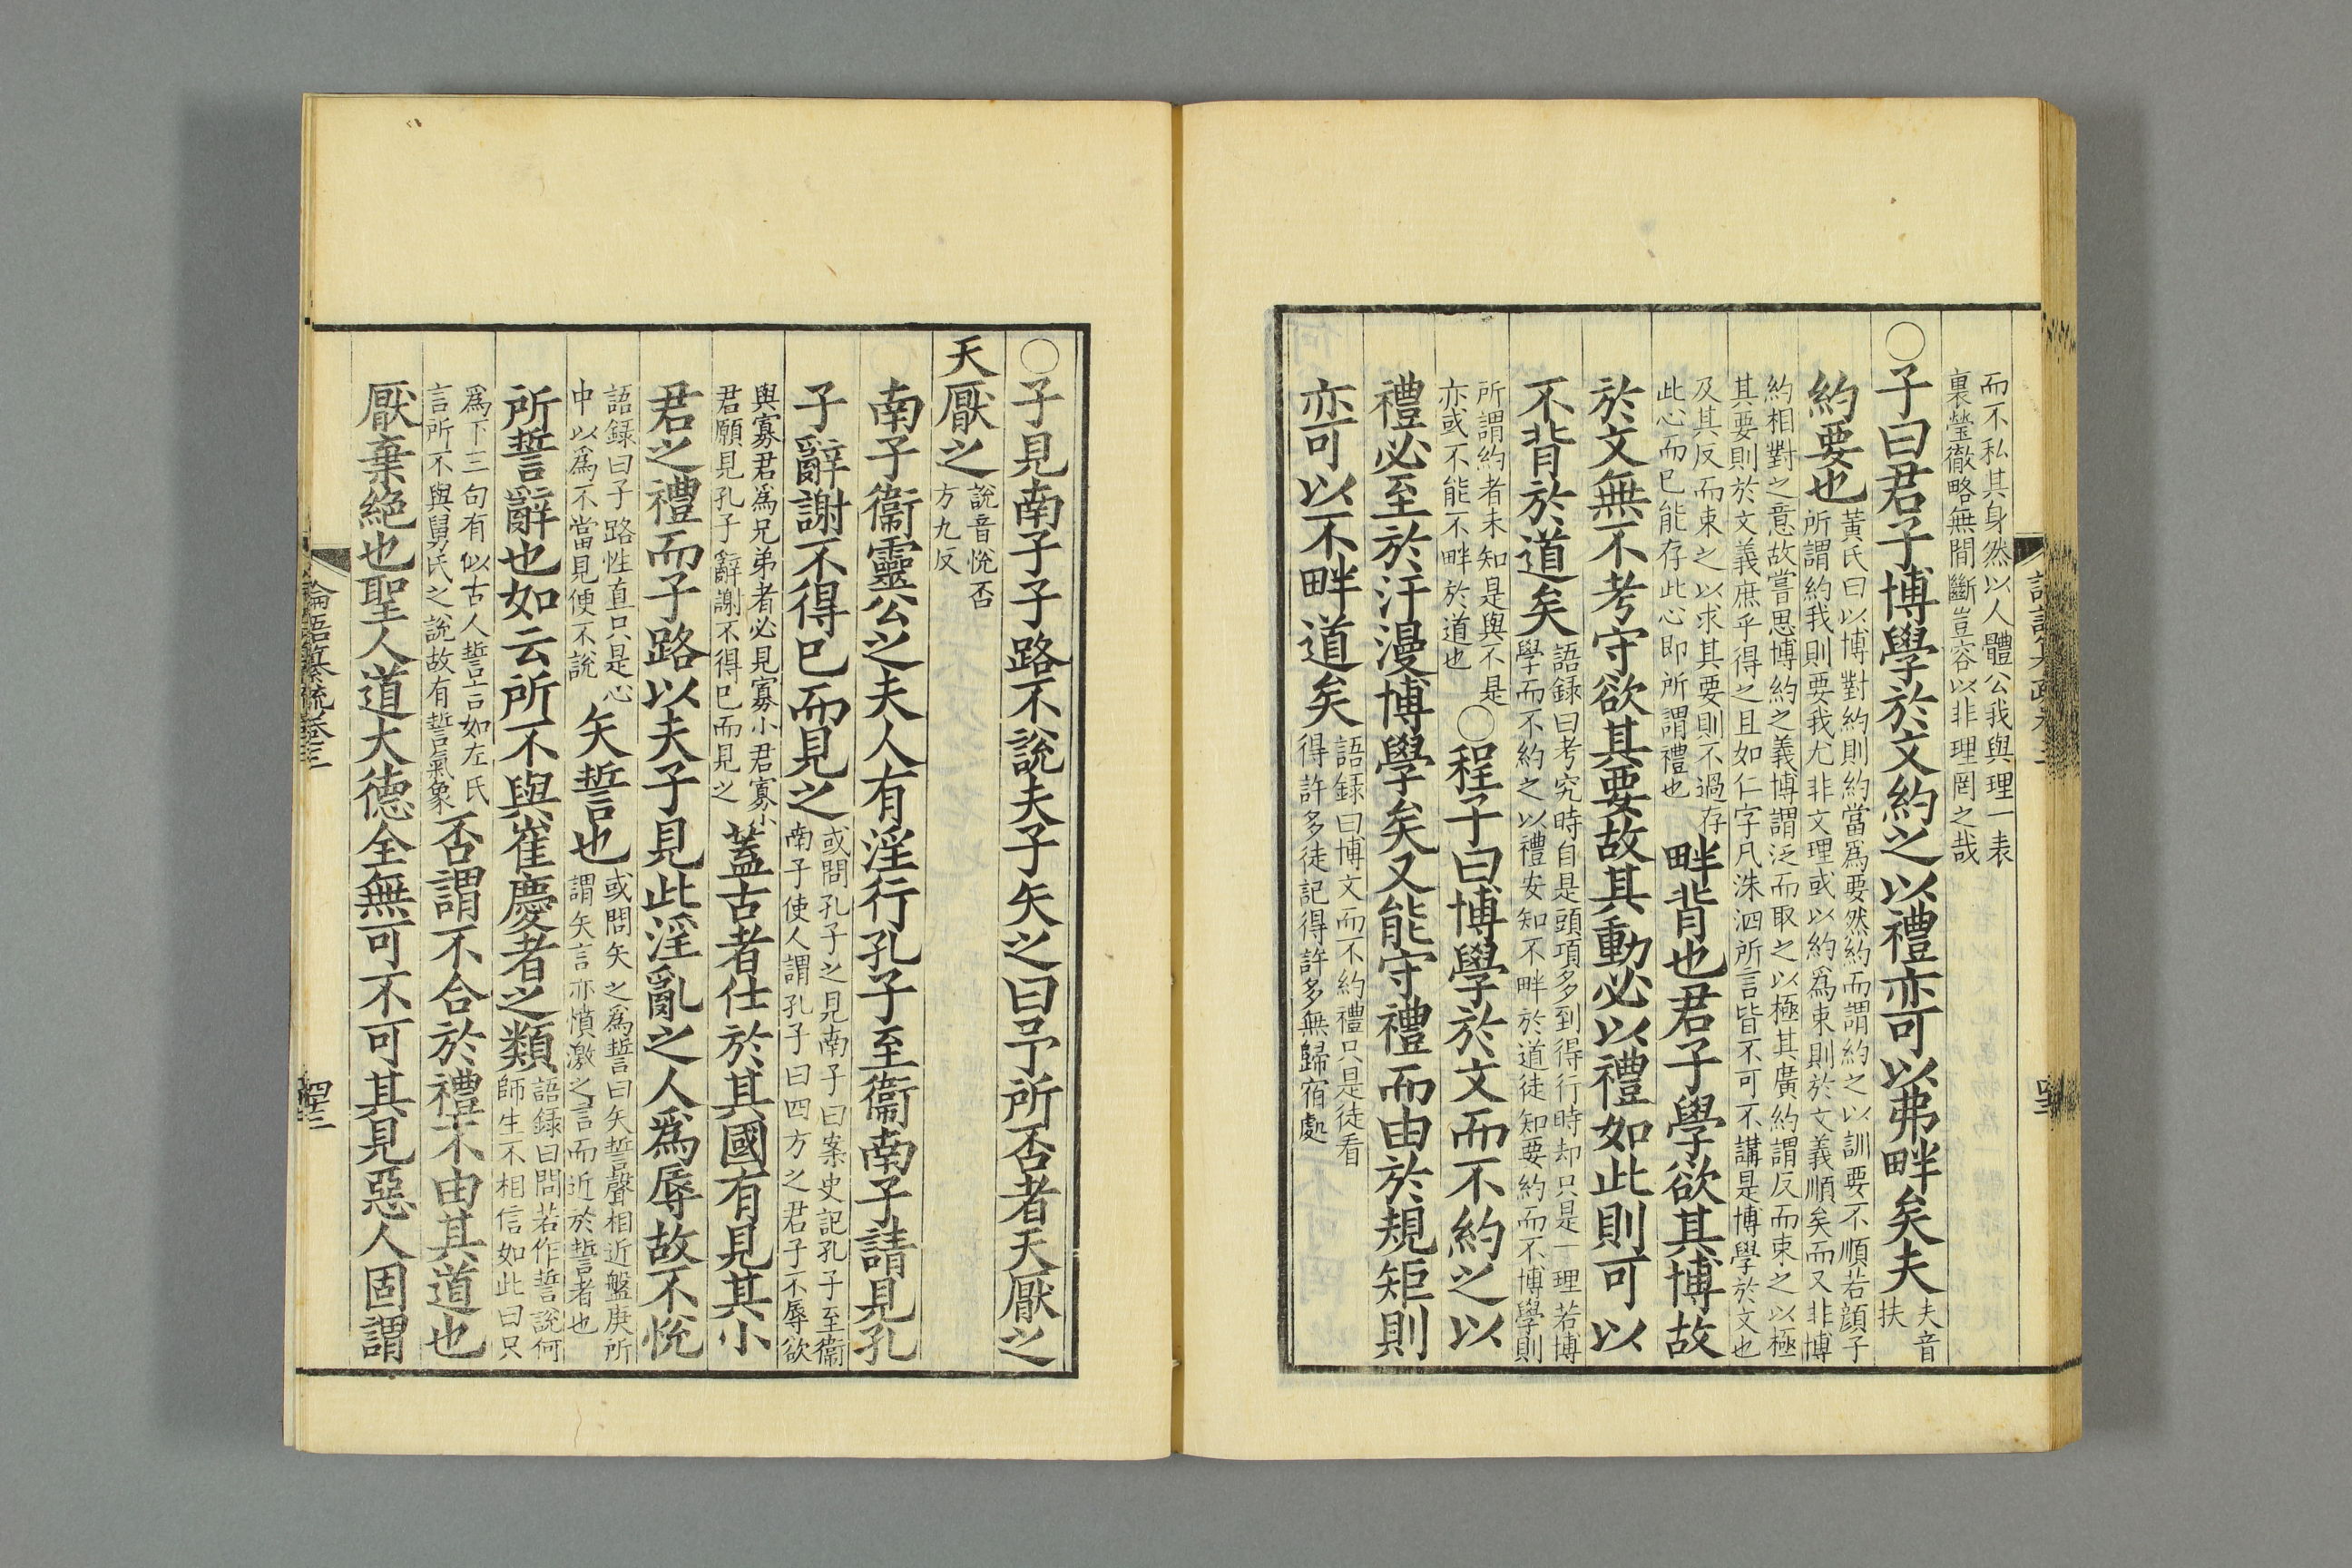 而不私其身然以人體公我與理一表
裏瑩徹略無間斷豈容以非理罔之哉
○子曰君子博學於文約之以禮亦可以弗畔矣夫夫音
扶
約要也黃氏曰以博對約則約當爲要然約而謂約之以訓要不順若顔子
所謂約我則要我尤非文理或以約爲束則於文義順矣而又非博
約相對之意故嘗思博約之義博謂泛而取之以極其廣約謂反而束之以極
其要則於文義庶乎得之且如仁字凡洙泗所言皆不可不講是博學於文也
及其反而束之以求其要則不過存
此心而已能存此心即所謂禮也
畔背也君子學欲其博故
於文無不考守欲其要故其動必以禮如此則可以
不背於道矣語録曰考究時自是頭項多到得行時却只是一理若博
學而不約之以禮安知不畔於道徒知要約而不博學則
所謂約者未知是與不是
亦或不能不畔於道也
○程子曰博學於文而不約之以
禮必至於汗漫博學矣又能守禮而由於規矩則
亦可以不畔道矣語録曰博文而不約禮只是徒看
得許多徒記得許多無歸宿處
○子見南子子路不說夫子矢之曰予所否者天厭之
天厭之說音悅否
方九反
南子衞靈公之夫人有淫行孔子至衞南子請見孔
子辭謝不得已而見之或問孔子之見南子曰案史記孔子至衞
南子使人謂孔子曰四方之君子不辱欲
與寡君爲兄弟者必見寡小君寡小
君願見孔子辭謝不得已而見之
蓋古者仕於其國有見其小
君之禮而子路以夫子見此淫亂之人爲辱故不悅
語録曰子路性直只是心
中以爲不當見便不說
矢誓也或問矢之爲誓曰矢誓聲相近盤庚所
謂矢言亦憤激之言而近於誓者也
所誓辭也如云所不與崔慶者之類語録曰問若作誓說何
師生不相信如此曰只
爲下三句有似古人誓言如左氏
言所不與舅氏之說故有誓氣象
否謂不合於禮不由其道也
厭棄絶也聖人道大德全無可不可其見惡人固謂
論語纂疏卷三
四十三